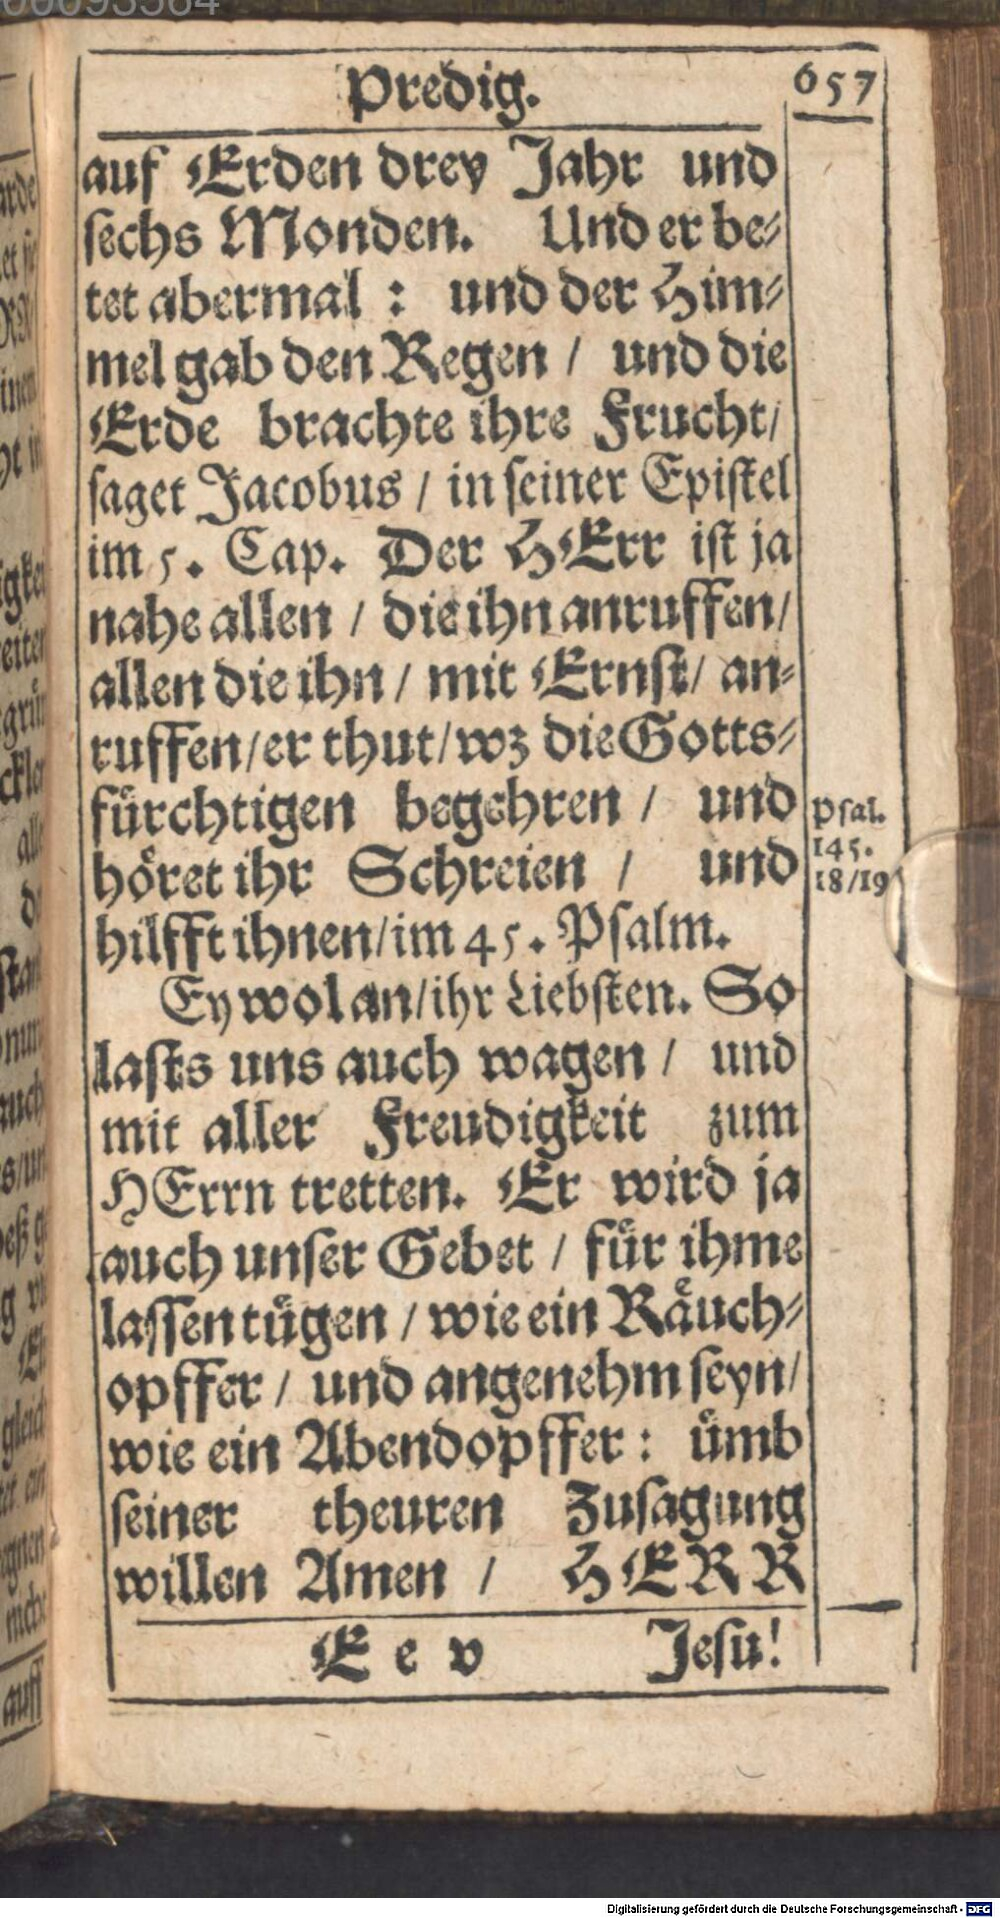 Predig.
657
auf Erden drey Jahr und
sechs Monden. Und er be-
tet abermal : und der Him-
mel gab den Regen / und die
Erde brachte ihre Frucht/
saget Jacobus / in seiner Epistel
im 5. Cap. Der HErr ist ja
nahe allen / die ihn anruffen/
allen die ihn / mit Ernst/ an-
ruffen/er thut/wz die Gotts-
fürchtigen begehren / und
höret ihr Schreien / und
hilfft ihnen/im 45. Psalm.
Psal.
145.
18/19
Ey wol an/ihr Liebsten. So
lasts uns auch wagen / und
mit aller Freudigkeit zum
HErrn tretten. Er wird ja
auch unser Gebet / für ihme
lassen tügen / wie ein Räuch-
opffer / und angenehm seyn/
wie ein Abendopffer : ümb
seiner theuren Zusagung
willen Amen / HERR
E e v Jesu!
Digitalisierung gefördert durch die Deutsche Forschungsgemeinschaft - DFG